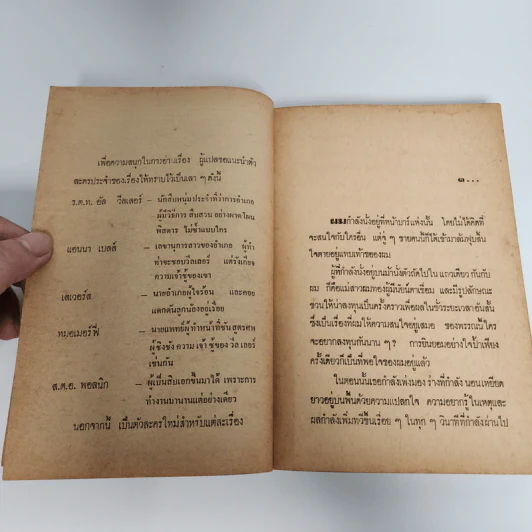 เพื่อความสนุกในการอ่านเรื่อง ผู้แปลขอแนะนำตัว
ละครประจำของเรื่องให้ทราบไว้เป็นเลา ๆ ดังนี้
ร.ต.ท. อัล วีลเลอร์ – นักสืบหนุ่มประจำที่ว่าการอำเภอ
ผู้มีวิธีการ สืบสวน อย่างผาดโผน
พิสดาร ไม่ซ้ำแบบใคร
แอนนา เบลล์ – เลขานุการสาวของอำเภอ ผู้ทำ
ท่าจะชอบวีลเลอร์ แต่รังเกียจ
ความเจ้าชู้ของเขา
เลเวอร์ส – นายอำเภอผู้ใจร้อน และคอย
แดกดันลูกน้องอยู่เรื่อย
หมอเมอร์ฟี่ – นายแพทย์ผู้ทำหน้าที่ชันสูตรศพ
ผู้ชิงชังความเจ้าชู้ของวีลเลอร์
เช่นกัน
ส.ต.อ. พอลนิก – ผู้เป็นสิบเอกขึ้นมาได้ เพราะการ
ทำงานมานานแต่อย่างเดียว
นอกจากนี้ เป็นตัวละครใหม่สำหรับแต่ละเรื่อง
๑...
กำลังนั่งอยู่ที่หน้าบาร์แห่งนั้น โดยไม่ได้คิดที่
จะสนใจกับใครอื่น แต่จู่ ๆ ชายคนนี้ก็ได้เข้ามาล้มฟุบสิ้น
ใจตายอยู่แทบเท้าของผม
ผู้ที่กำลังนั่งอยู่บนม้านั่งตัวถัดไปใน แถวเดียว กันกับ
ผม ก็คือแม่สาวผมทองผู้มีนัยน์ตาเชื่อม และมีรูปลักษณะ
ชวนให้น่าลงทุนเป็นครั้งคราวเพื่อผลในชั่วระยะเวลาอันสั้น
ซึ่งเป็นเรื่องที่ผมให้ความสนใจอยู่เสมอ ของพรรค์นี้ใคร
จะอยากลงทุนกันนาน ๆ? การยินยอมอย่างใจป้ำเพียง
ครั้งเดียวก็เป็นที่พอใจของผมอยู่แล้ว
ในตอนนั้นเธอกำลังเพ่งมอง ร่างที่กำลัง นอนเหยียด
ยาวอยู่บนพื้นด้วยความแปลกใจ ความอยากรู้ในเหตุและ
ผลกำลังเพิ่มทวีขึ้นเรื่อย ๆ ในทุก ๆ วินาทีที่กำลังผ่านไป